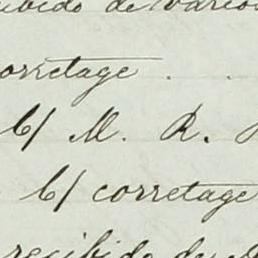 recibido de varios
corretage
b/ M. R.
b/ corretage
recibido de